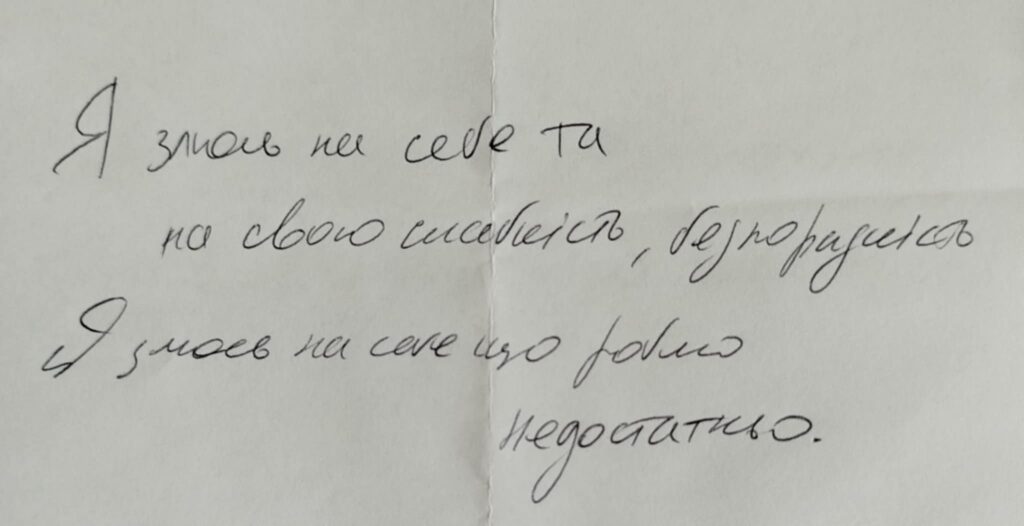 Я злюсь на себе та
на свою слабкість, безпорадність
Я злюсь на себе що роблю
недостатньо.